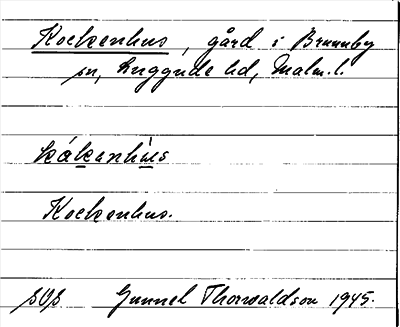 Kockenhus, gård i Brunnby
sn, Luggude hd, Malm.l.
kákenhùs
Kockenhus.
SOS Gunnel Thorwaldson 1945.